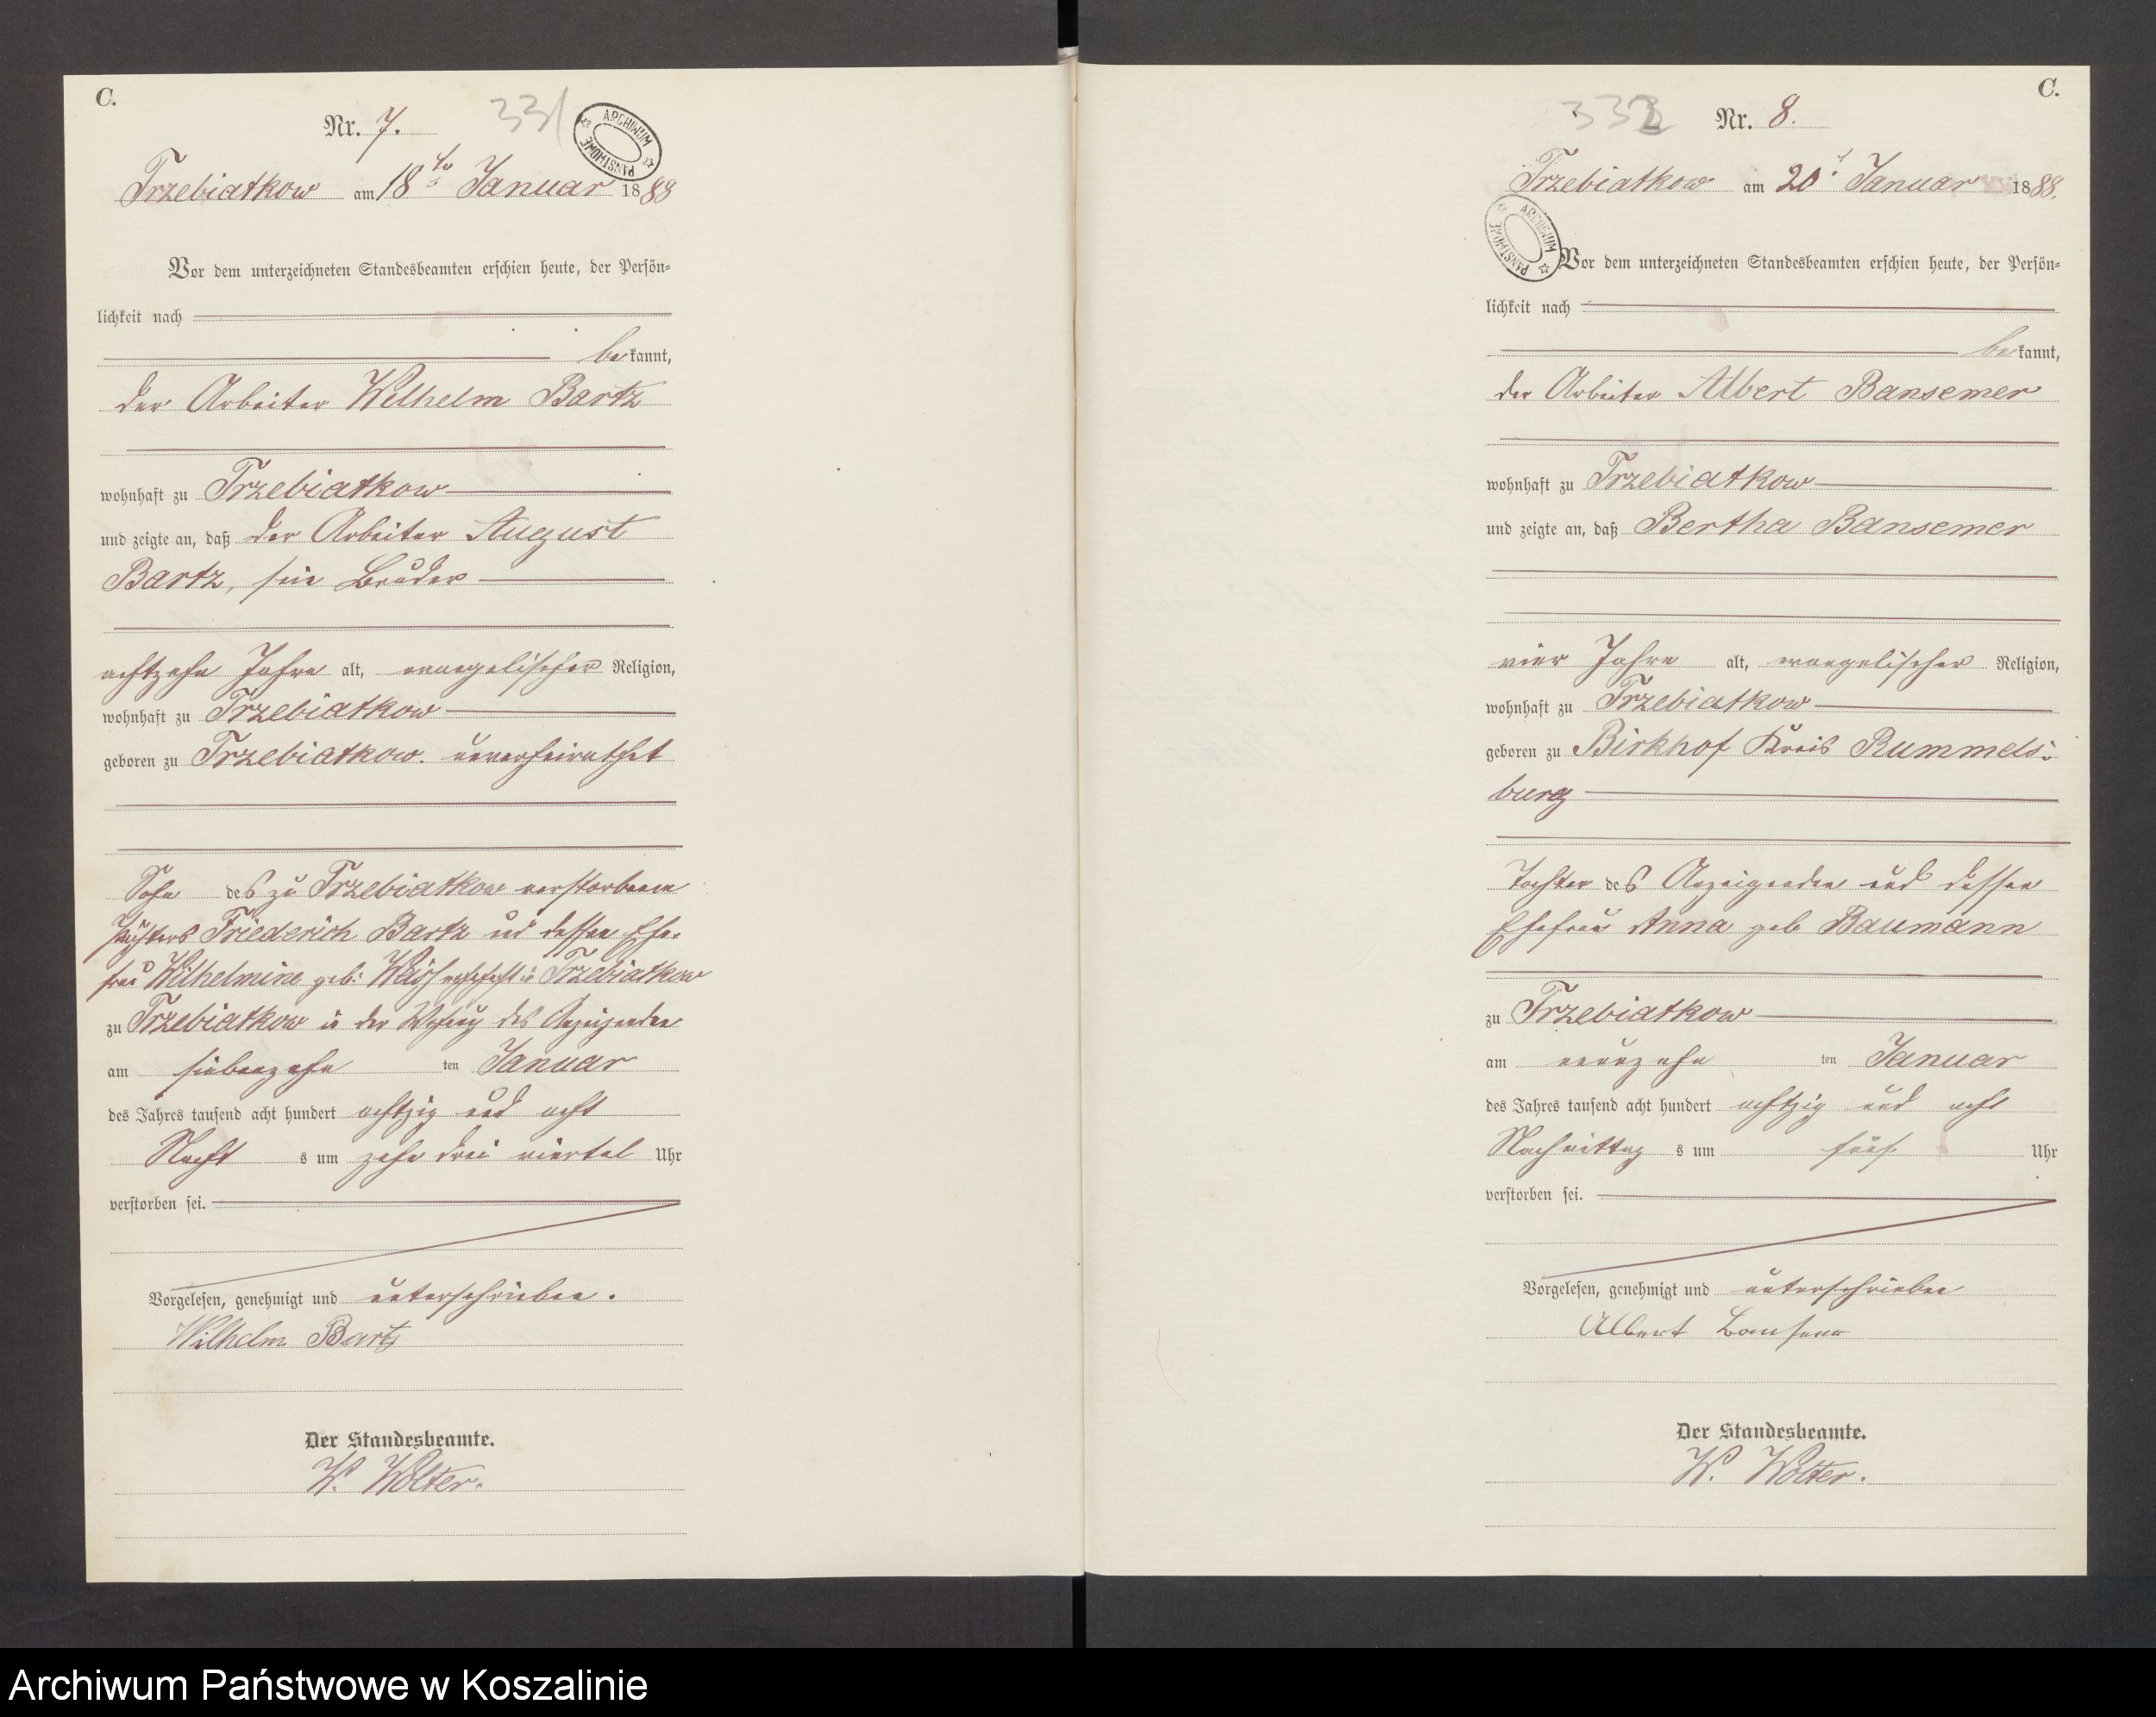 C.
Nr. 7.
331
ARCHIWUM PAŃSTWOWE
Trzebiatkow am 18ten Januar 1888
Vor dem unterzeichneten Standesbeamten erschien heute, der Persön=
lichkeit nach
bekannt,
der Arbeiter Wilhelm Bartz
wohnhaft zu Trzebiatkow
und zeigte an, daß der Arbeiter August
Bartz, sein Bruder
achtzehn Jahre alt, evangelischer Religion,
wohnhaft zu Trzebiatkow
geboren zu Trzebiatkow. unverheirathet
Sohn des zu Trzebiatkow verstorbenen
Friederich Bartz und dessen Ehe-
frau Wilhelmine geb. wohnhaft in Trzebiatkow
zu Trzebiatkow in der Wohnung des Anzeigenden
am siebenzehn ten Januar
des Jahres tausend acht hundert achtzig und acht
Nacht s um zehn drei viertel Uhr
verstorben sei.
Vorgelesen, genehmigt und unterschrieben.
Wilhelm Bartz
Der Standesbeamte.
W. Wolter.
C.
332 Nr. 8.
Trzebiatkow am 20t. Januar 1888.
ARCHIWUM PAŃSTWOWE
Vor dem unterzeichneten Standesbeamten erschien heute, der Persön=
lichkeit nach
bekannt,
der Arbeiter Albert Bansemer
wohnhaft zu Trzebiatkow
und zeigte an, daß Bertha Bansemer
vier Jahre alt, evangelischer Religion,
wohnhaft zu Trzebiatkow
geboren zu Birkhof Kreis Rummels-
burg
Tochter des Anzeigenden und dessen
Ehefrau Anna geb Baumann
zu Trzebiatkow
am neunzehn ten Januar
des Jahres tausend acht hundert achtzig und acht
Nachmittag s um fünf Uhr
verstorben sei.
Vorgelesen, genehmigt und unterschrieben
Albert Bansemer
Der Standesbeamte.
W. Wolter.
Archiwum Państwowe w Koszalinie